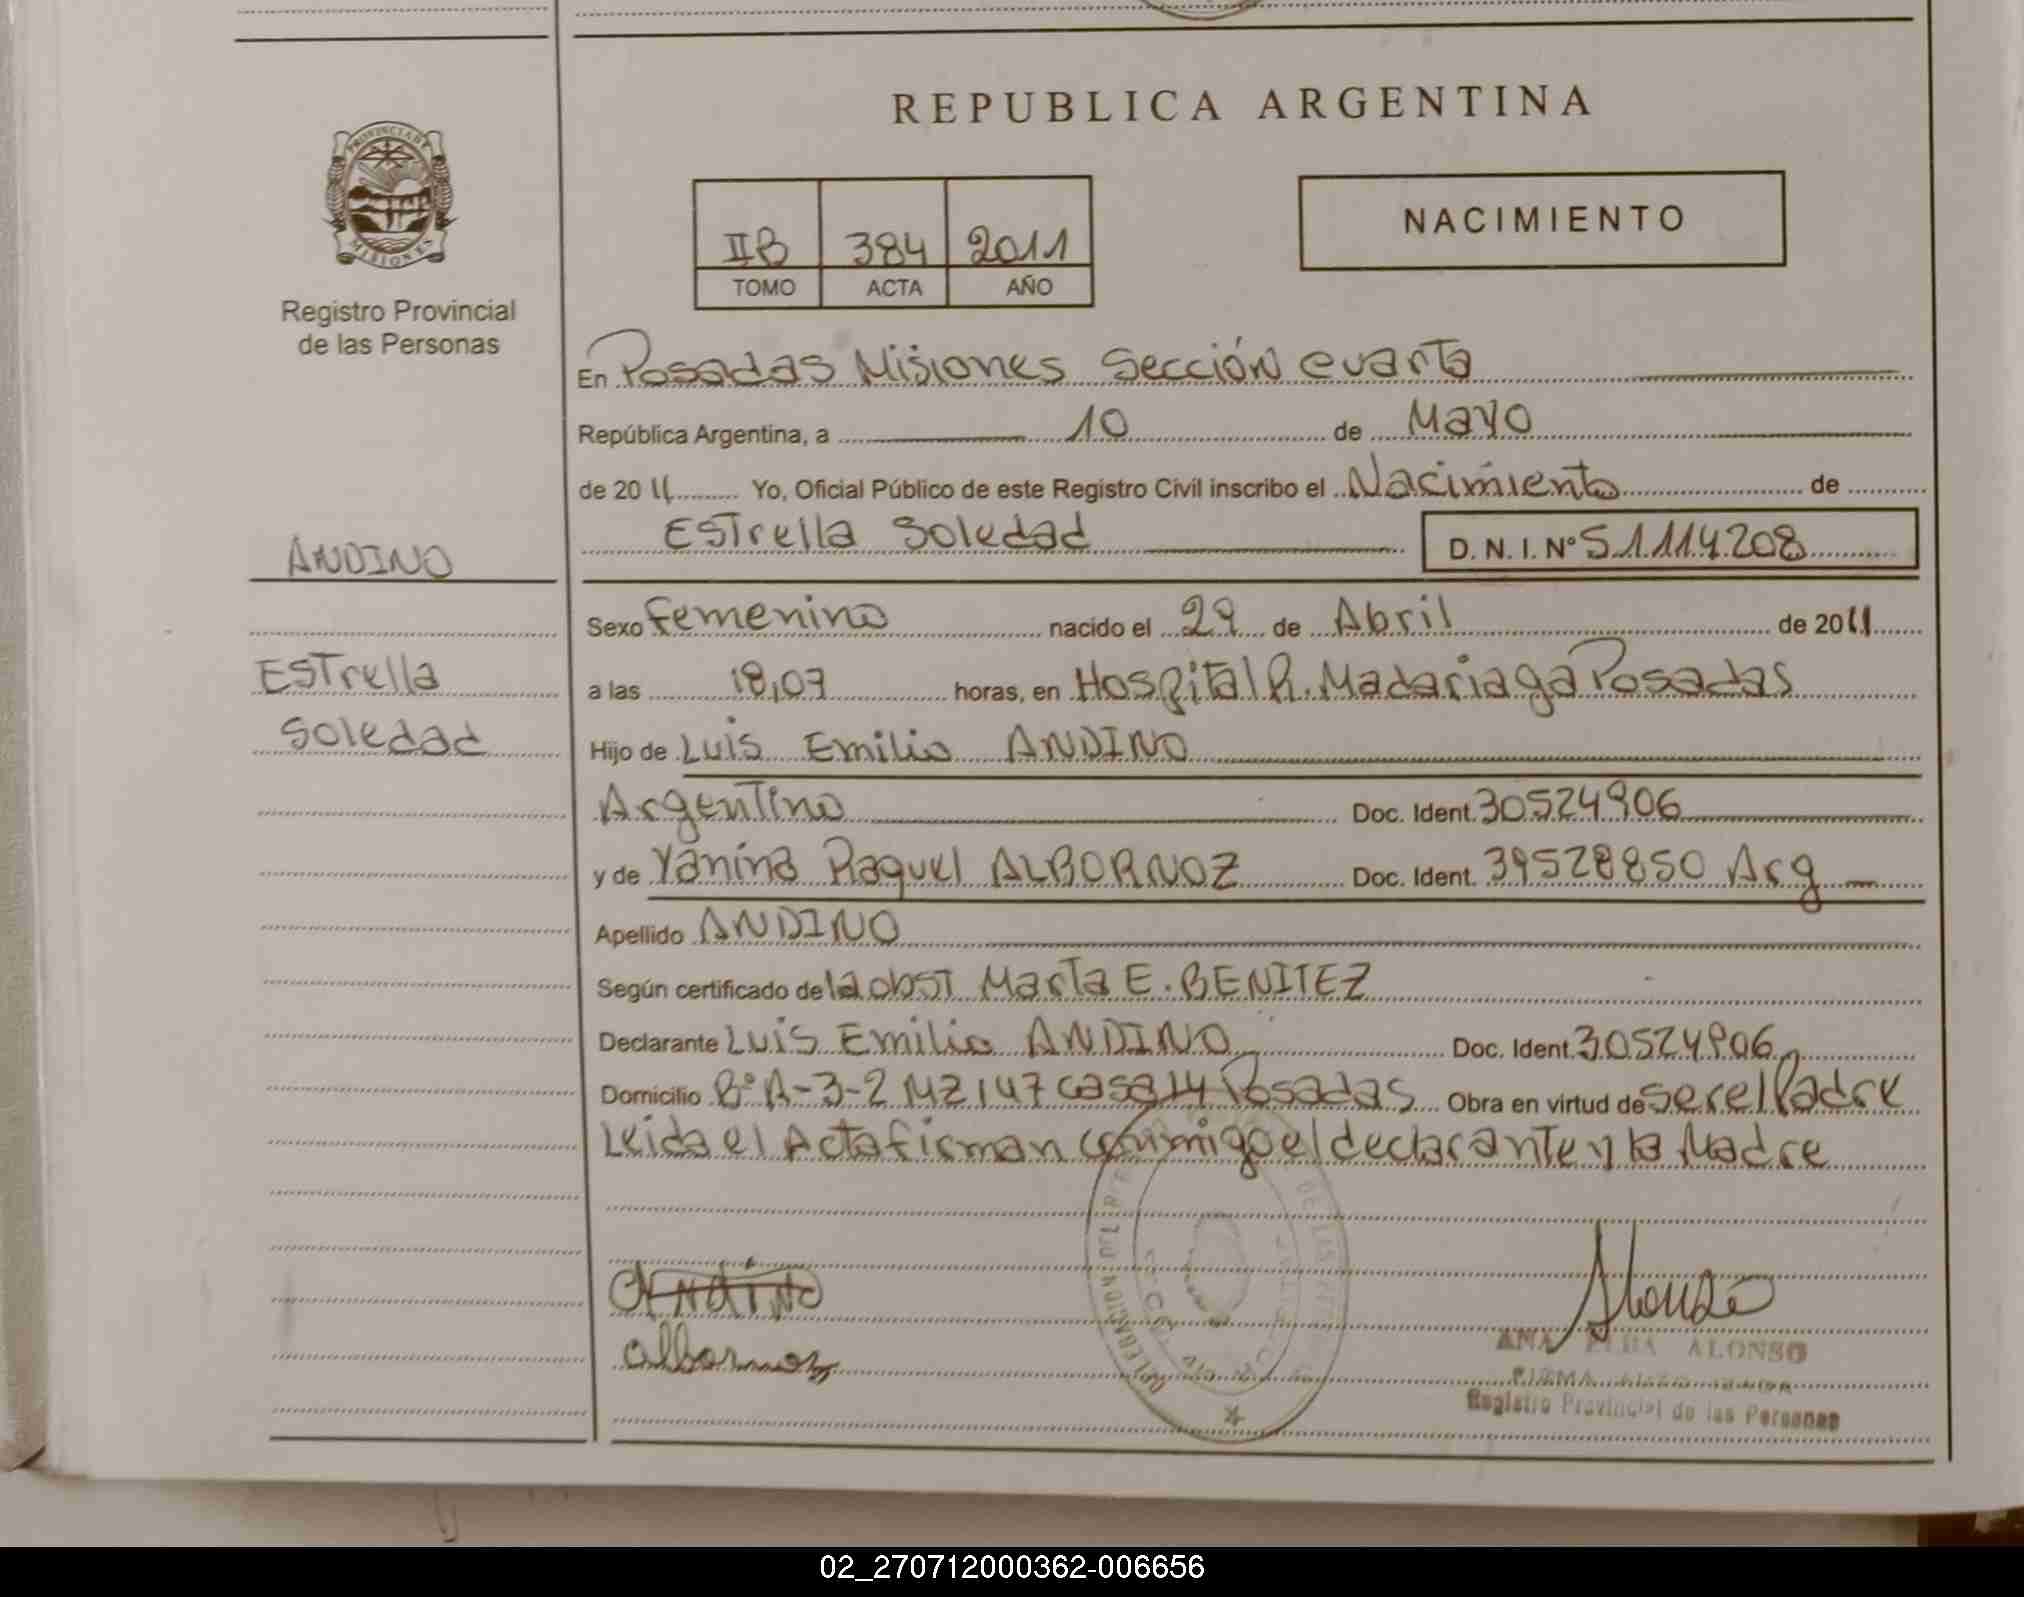 REPUBLICA ARGENTINA
PROVINCIA DE
MISIONES
Registro Provincial
de las Personas
IIB 384 2011
TOMO ACTA AÑO
NACIMIENTO
En Posadas Misiones Sección cuarta
República Argentina, a 10 de Mayo
de 2011 Yo, Oficial Público de este Registro Civil inscribo el Nacimiento de
Estrella Soledad D. N. I. Nº 51.114.208
ANDINO
Estrella
Soledad
Sexo Femenino nacido el 29 de Abril de 2011
a las 18,07 horas, en Hospital R. Madariaga Posadas
Hijo de Luis Emilio ANDINO
Argentino Doc. Ident. 30524906
y de Yanina Raquel ALBORNOZ Doc. Ident. 39528850 Arg
Apellido ANDINO
Según certificado de la obst Marta E. BENITEZ
Declarante Luis Emilio ANDINO Doc. Ident. 30524906
Domicilio Bº A-3-2 MZ 147 casa 14 Posadas Obra en virtud de ser el Padre
Leida el Acta firman conmigo el declarante y la Madre
Andino
albornoz
Alonso
ANA ELBA ALONSO
FIRMA
Registro Provincial de las Personas
DELEGACION DEL
DE LAS
02_270712000362-006656